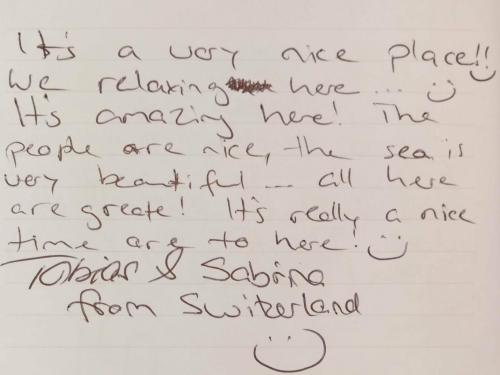 It's a very nice place!!
We relaxing here ... :)
It's amazing here! The
people are nice, the sea is
very beautiful ... all here
are greate! It's really a nice
time are to here! :)
Tobias & Sabrina
from Switzerland
:)